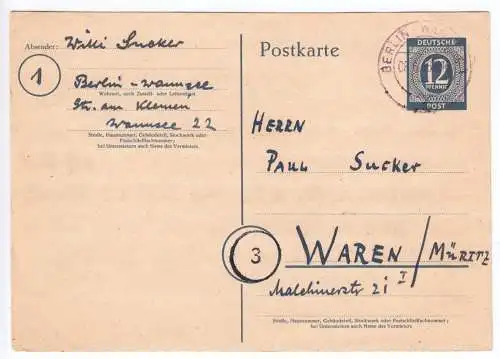 Absender: Willi Sucker
1
Berlin-Wannsee
Wohnort, auch Zustell- oder Leitpostamt
Str. am Kleinen
Wannsee 22
Straße, Hausnummer, Gebäudeteil, Stockwerk oder
Postschließfachnummer;
bei Untermietern auch Name des Vermieters.
Postkarte
BERLIN
DEUTSCHE
12
PFENNIG
POST
HERRN
PAUL SUCKER
3
WAREN / MÜRITZ
Malchinerstr 2i I
Straße, Hausnummer, Gebäudeteil, Stockwerk oder Postschließfachnummer;
bei Untermietern auch Name des Vermieters